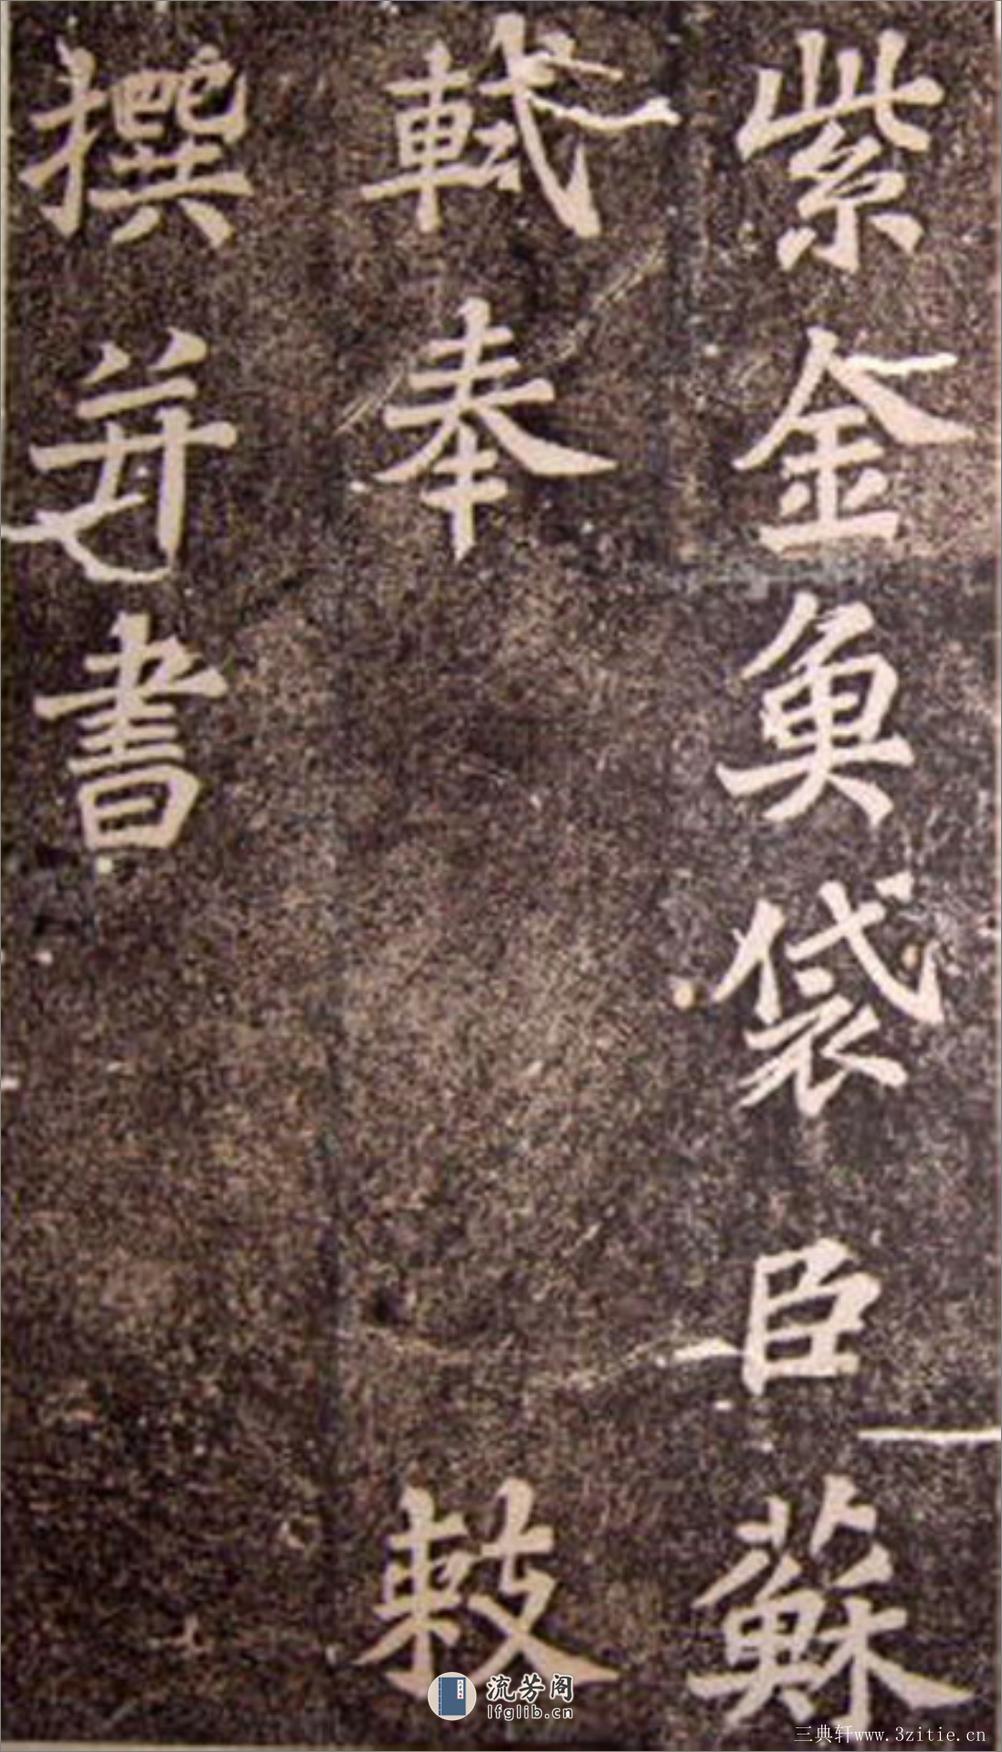 紫金魚袋臣蘇
軾奉敕
撰并書
流芳阁
lfglib.cn
三典轩www.3zitie.cn